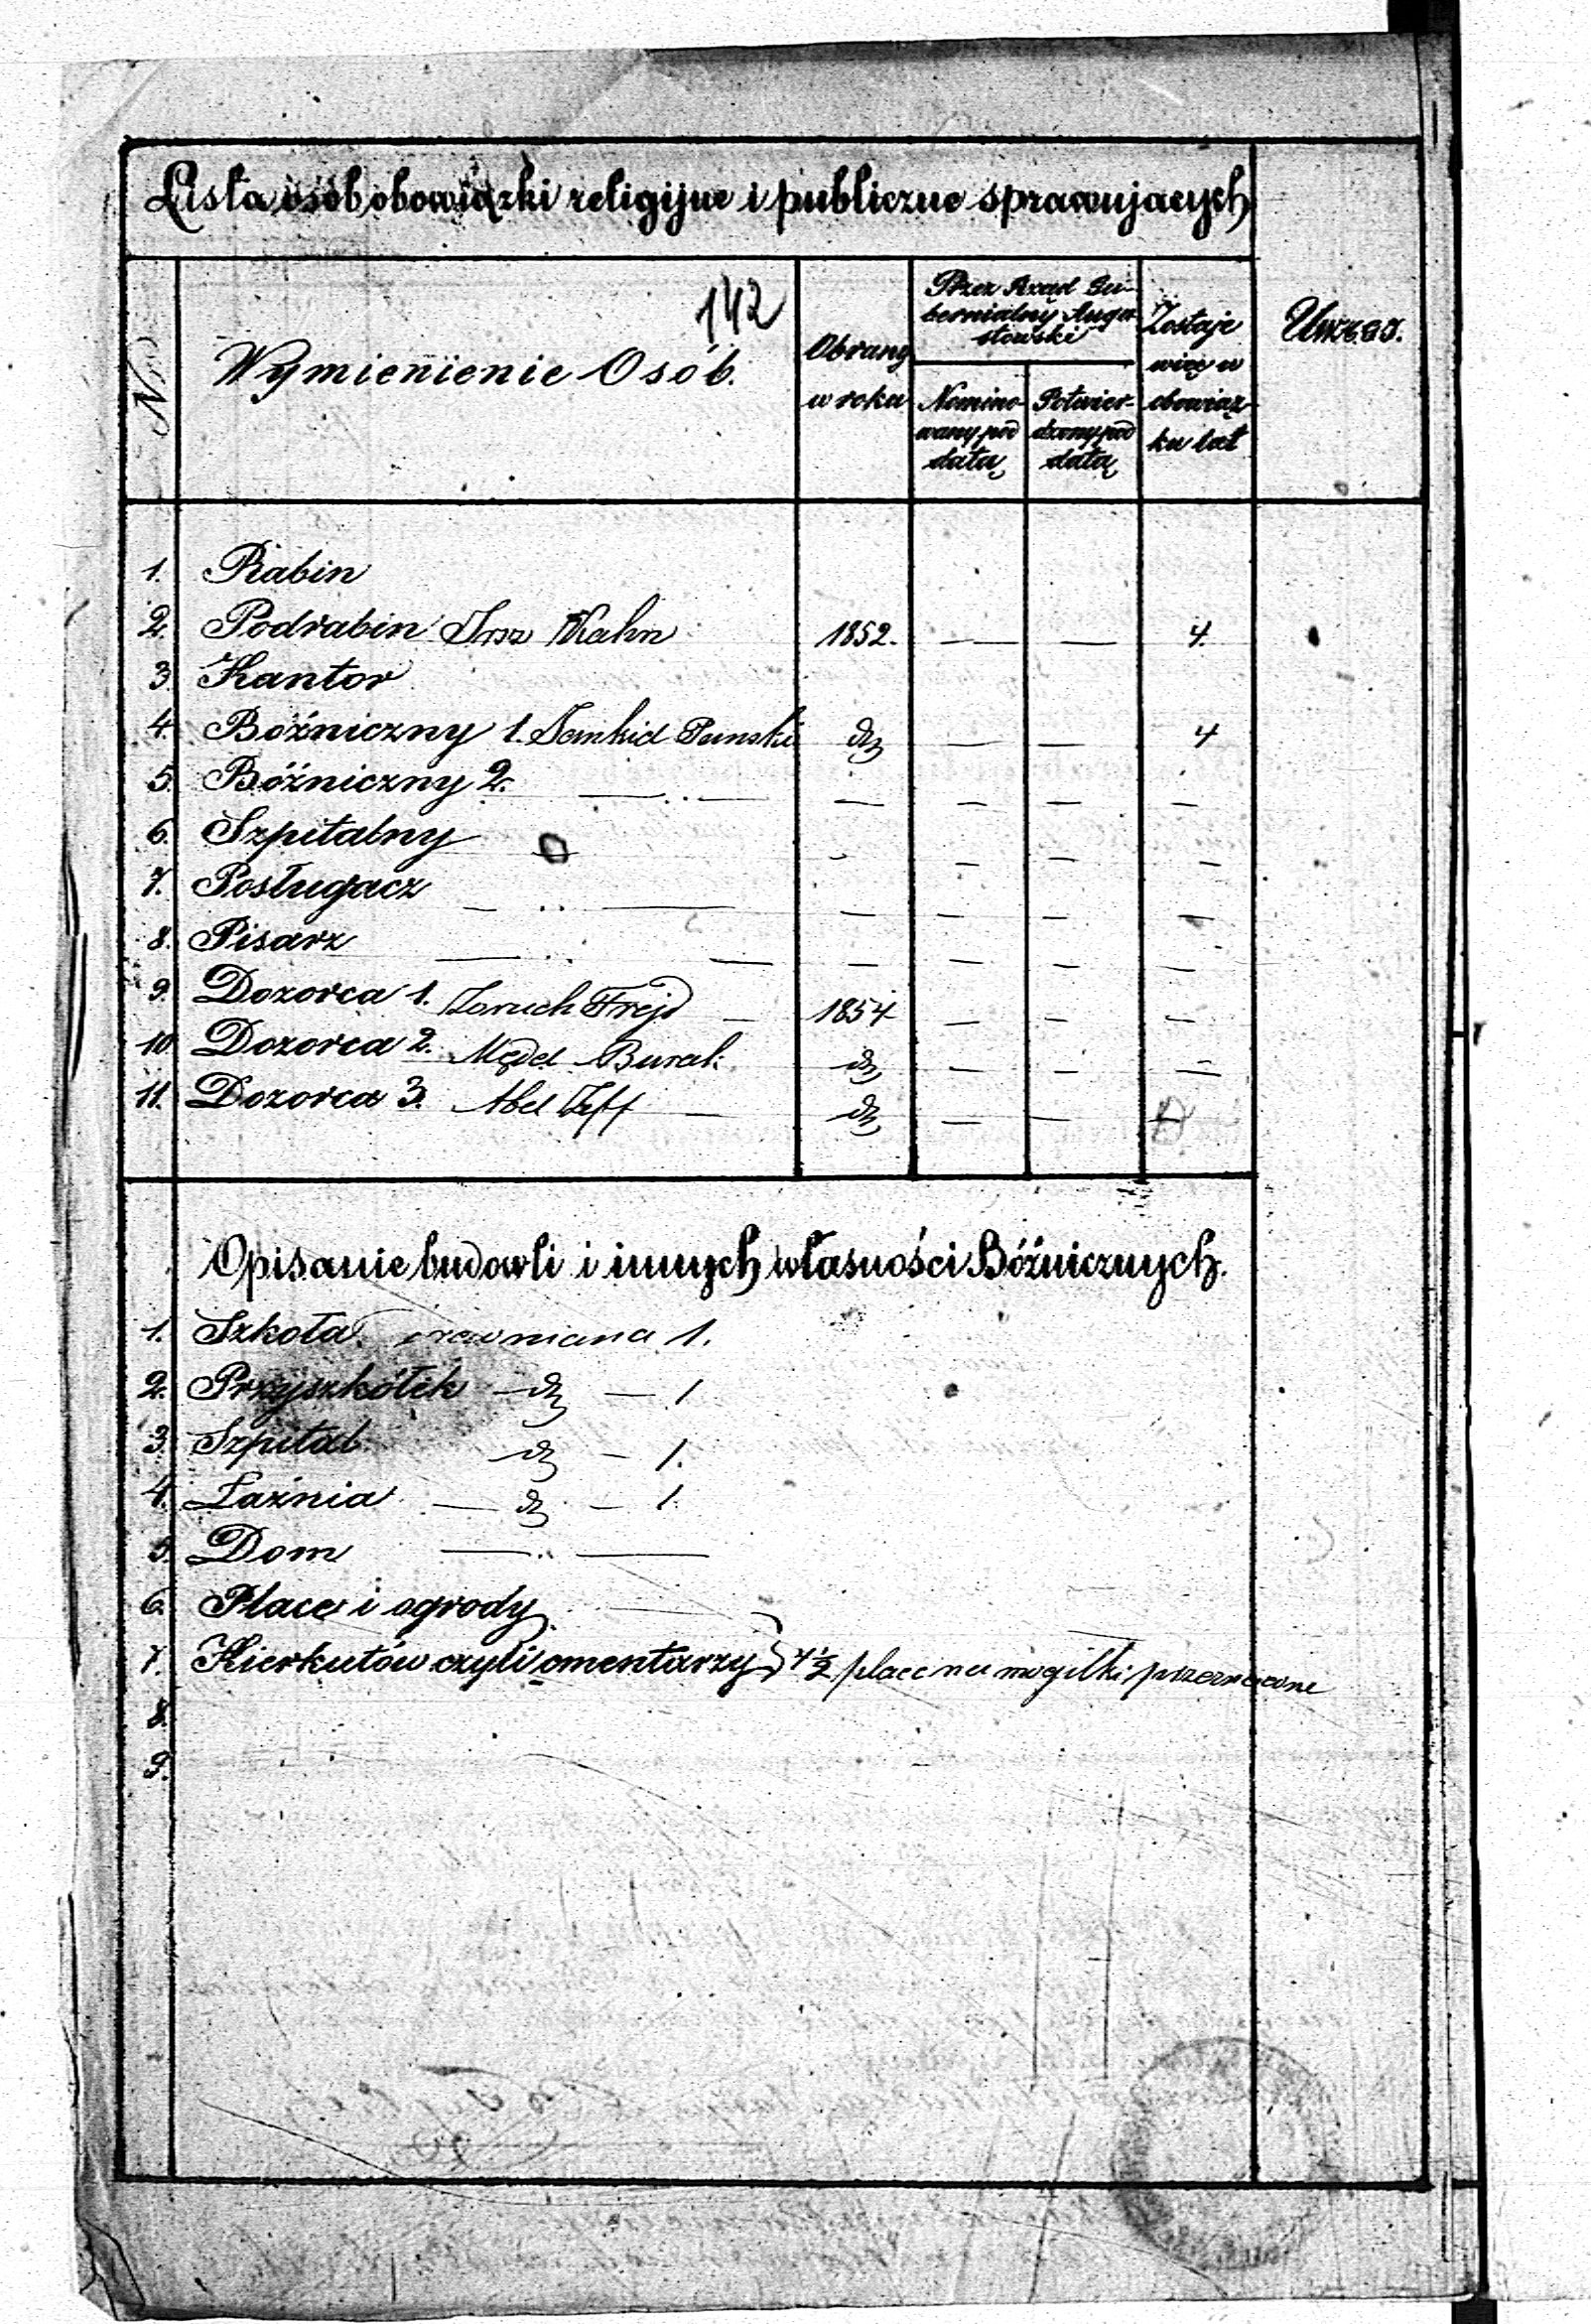 Lista osób obowiązki religijne i publiczne sprawujących
142
Nro
Wymienienie Osób.
Obrany w roku
Przez Rząd Gu-
bernialny Augu-
stowski
Nomino-
wany pod
datą
Potwier-
dzony pod
datą
Zostaje
więc w
obowiąz-
ku lat
Uwagi.
1. Rabin
2. Podrabin Irsz Kahn 1852. — — 4.
3. Kantor
4. Bóźniczny 1. Punski dto — — 4
5. Bóźniczny 2. — — — — —
6. Szpitalny — — — —
7. Posługacz — — — — —
8. Pisarz — — — — —
9. Dozorca 1. Frejd — 1854 — — —
10. Dozorca 2. Burak dto — — —
11. Dozorca 3. Abel — dto — — —
Opisanie budowli i innych własności Bóźnicznych.
1. Szkoła drewniana 1.
2. Przyszkółek — dto — 1
3. Szpital dto — 1.
4. Łaźnia — dto — 1.
5. Dom — —
6. Place i ogrody
7. Kierkutów czyli cmentarzy } place na mogiłki przeznaczone
8.
9.